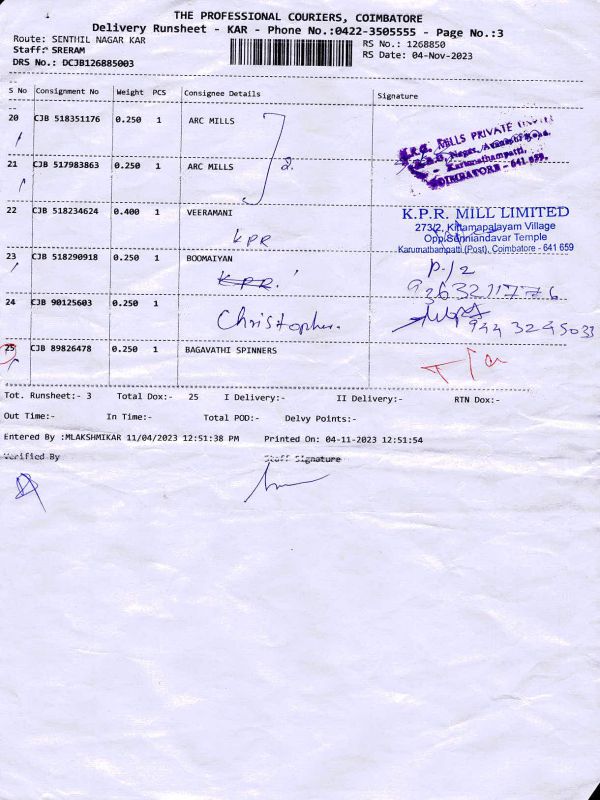 THE PROFESSIONAL COURIERS, COIMBATORE
Delivery Runsheet - KAR - Phone No.:0422-3505555 - Page No.:3
Route: SENTHIL NAGAR KAR
RS No.: 1268850
Staff: SRERAM
RS Date: 04-Nov-2023
DRS No.: DCJB126885003
S No Consignment No Weight PCS Consignee Details Signature
20 CJB 518351176 0.250 1 ARC MILLS
MILLS PRIVATE
Nagar, Avanashi Road,
Karumathampatti,
COIMBATORE - 641 659.
21 CJB 517983863 0.250 1 ARC MILLS 2
22 CJB 518234624 0.400 1 VEERAMANI
KPR
K.P.R. MILL LIMITED
273/2, Kittamapalayam Village
Opp. Senniandavar Temple
Karumathampatti (Post), Coimbatore - 641 659
23 CJB 518290918 0.250 1 BOOMAIYAN
KPR
P/2
9363211776
24 CJB 90125603 0.250 1
Christopher.
944 3245033
25 CJB 89826478 0.250 1 BAGAVATHI SPINNERS
Tot. Runsheet:- 3 Total Dox:- 25 I Delivery:- II Delivery:- RTN Dox:-
Out Time:- In Time:- Total POD:- Delvy Points:-
Entered By :MLAKSHMIKAR 11/04/2023 12:51:38 PM Printed On: 04-11-2023 12:51:54
Verified By Staff Signature